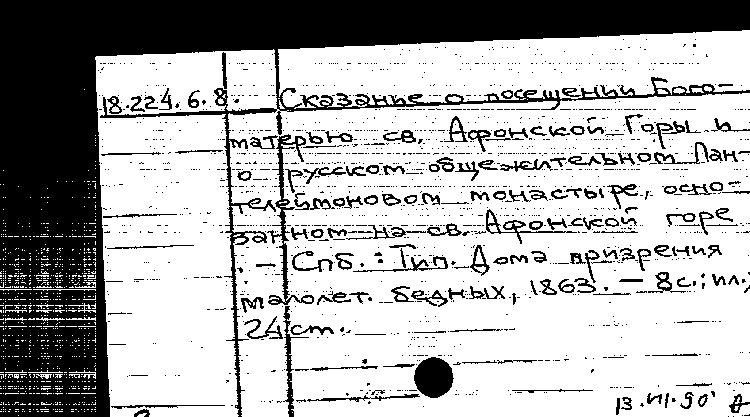 18.224.6.8. Сказание о посещении Бого-
матерью св. Афонской Горы и
о русском общежительном Пан-
телеймоновом монастыре, осно-
ванном на св. Афонской горе
. – Спб.: Тип. Дома призрения
малолет. бедных, 1863. – 8 с.; ил.;
24 cm.